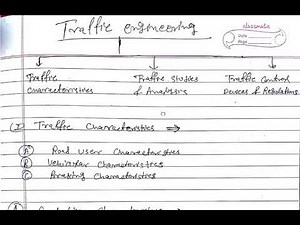 Traffic engineering
classmate
Date
Page
Traffic Characteristics
Traffic Studies & Analysis
Traffic Control Devices & Regulations
(I) Traffic Characteristics ⇒
(A) Road User Characteristics
(B) Vehicular Characteristics
(C) Breaking Characteristics